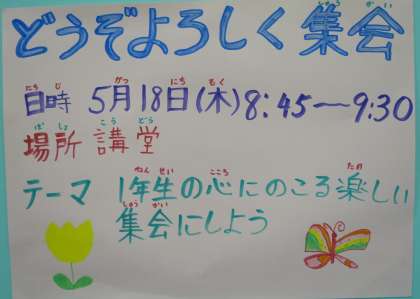 どうぞよろしく集会
日時 5月18日(木)8:45―9:30
場所 講堂
テーマ 1年生の心にのこる楽しい
集会にしよう